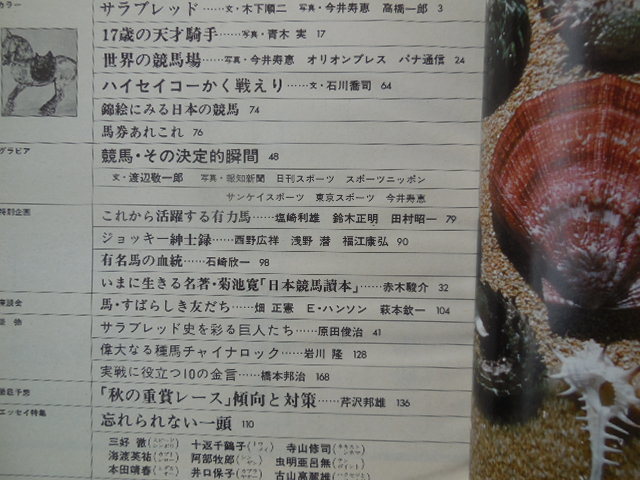 カラー
サラブレッド……文・木下順二 写真・今井寿恵 高橋一郎 3
17歳の天才騎手……写真・青木 実 17
世界の競馬場……写真・今井寿恵 オリオンプレス パナ通信 24
ハイセイコーかく戦えり……文・石川喬司 64
錦絵にみる日本の競馬 74
馬券あれこれ 76
グラビア
競馬・その決定的瞬間 48
文・渡辺敬一郎 写真・報知新聞 日刊スポーツ スポーツニッポン
サンケイスポーツ 東京スポーツ 今井寿恵
特別企画
これから活躍する有力馬……塩崎利雄 鈴木正明 田村昭一 79
ジョッキー紳士録……西野広祥 浅野 潜 福江康弘 90
有名馬の血統……石崎欣一 98
いまに生きる名著・菊池寛「日本競馬讀本」……赤木駿介 32
座談会
馬・すばらしき友だち……畑 正憲 E・ハンソン 萩本欽一 104
サラブレッド史を彩る巨人たち……原田俊治 41
偉大なる種馬チャイナロック……岩川 隆 128
実戦に役立つ10の金言……橋本邦治 168
「秋の重賞レース」傾向と対策……芹沢邦雄 136
エッセイ特集
忘れられない一頭 110
三好 徹 十返千鶴子 寺山修司
海渡英祐 阿部牧郎 虫明亜呂無
本田靖春 井口保子 古山高麗雄